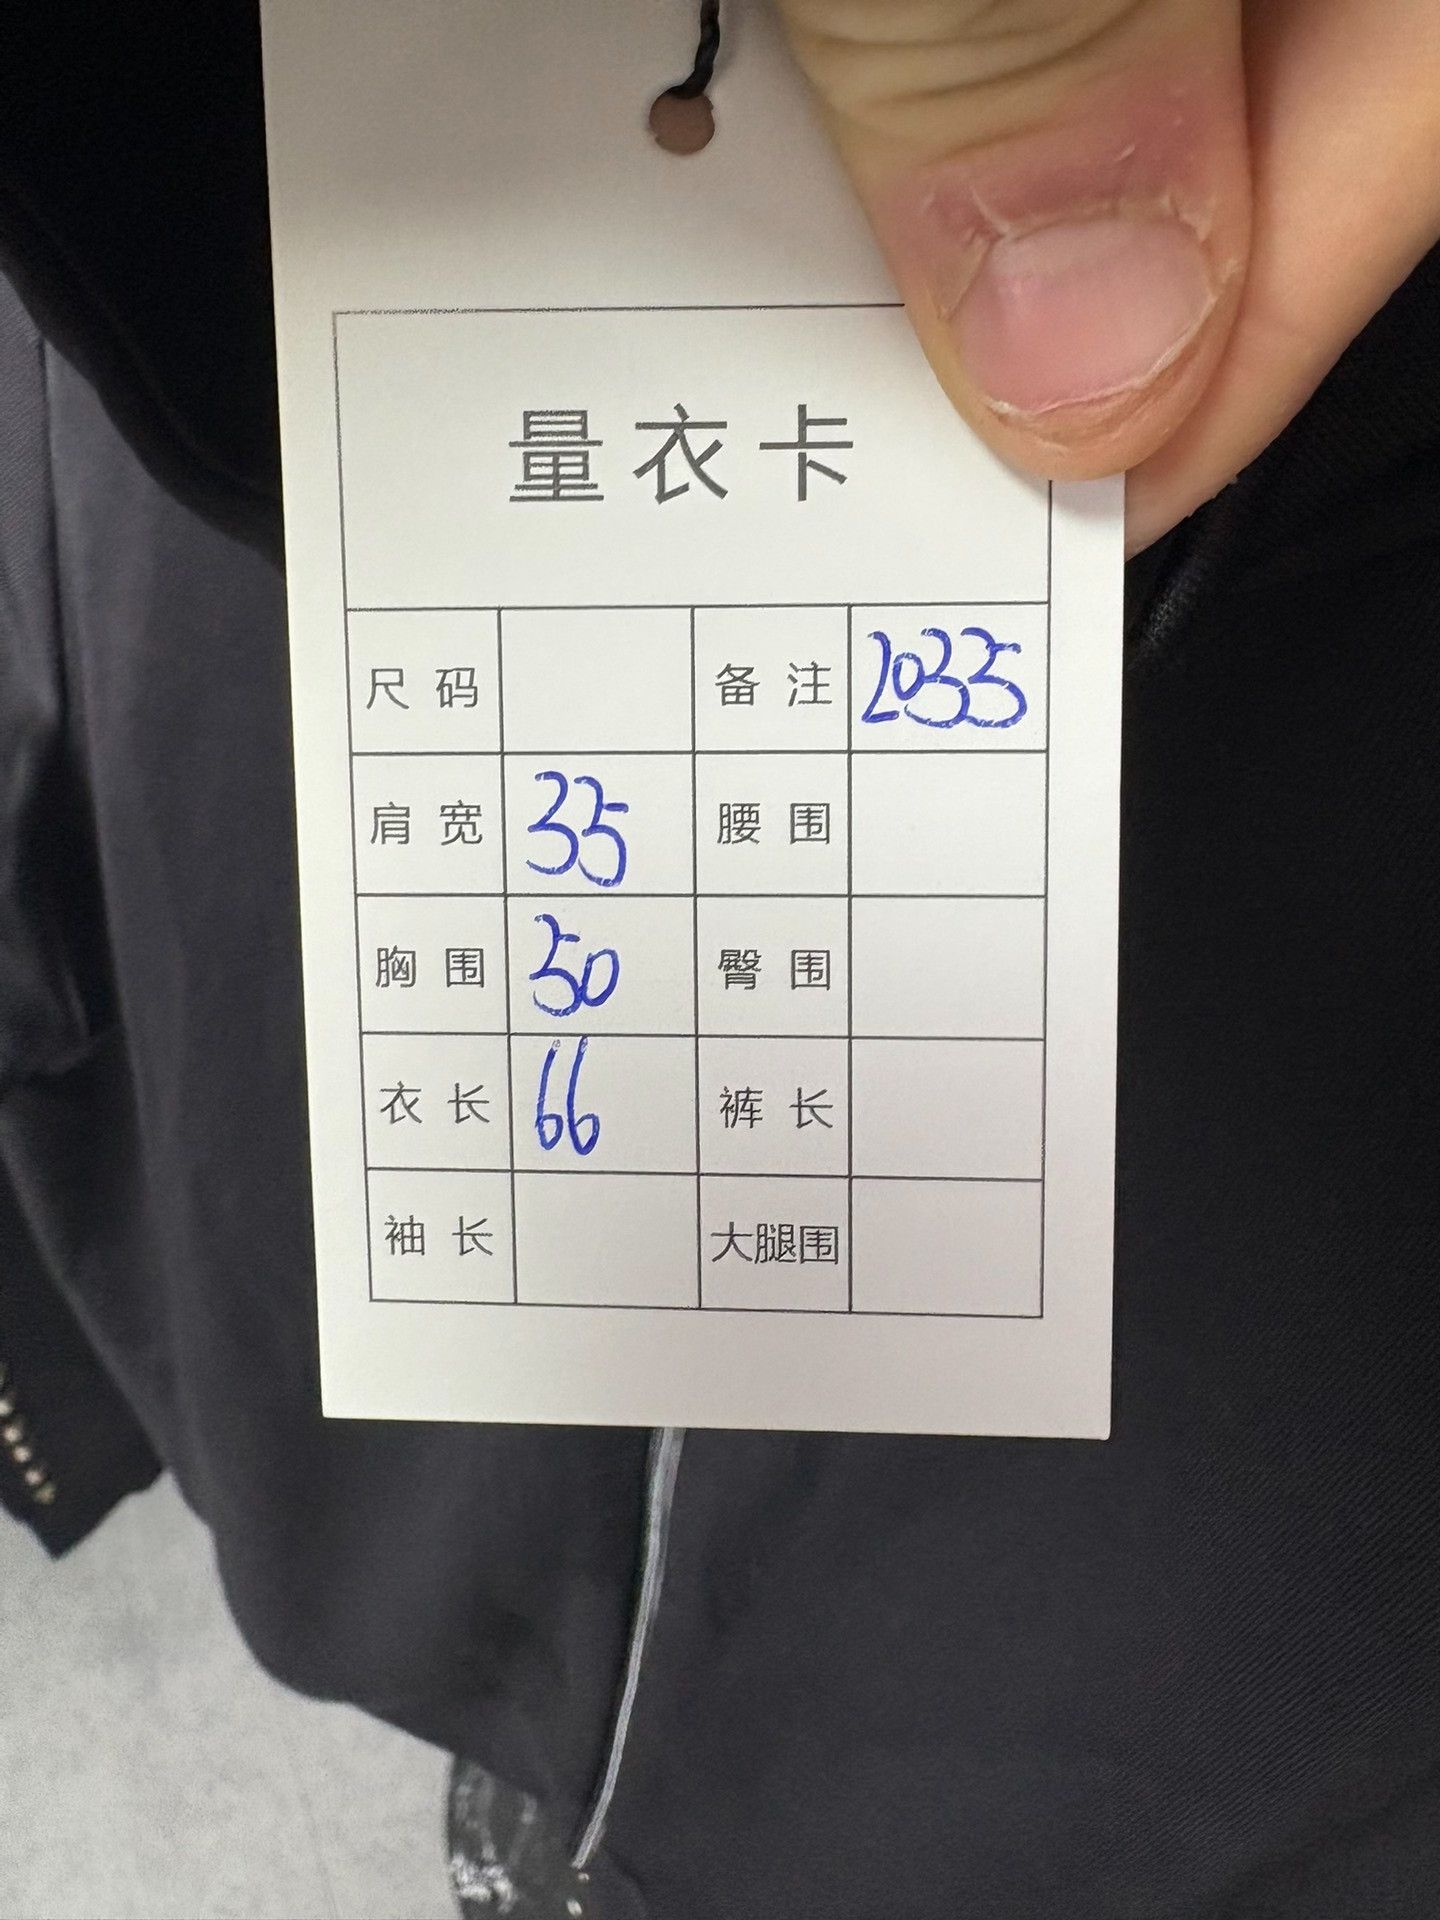 量衣卡
尺码 备注 2035
肩宽 35 腰围
胸围 50 臀围
衣长 66 裤长
袖长 大腿围